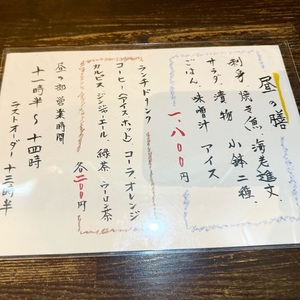 昼の膳
刺身 焼き魚 海老進丈
小鉢二種
サラダ 漬物
ごはん、味噌汁 アイス
一、八〇〇円
ランチドリンク
コーヒー(アイス、ホット)、コーラ、オレンジ
カルピス ジンジャーエール 緑茶 ウーロン茶
各二〇〇円
昼の御営業時間
十一時半〜十四時
ラストオーダー 十三時半